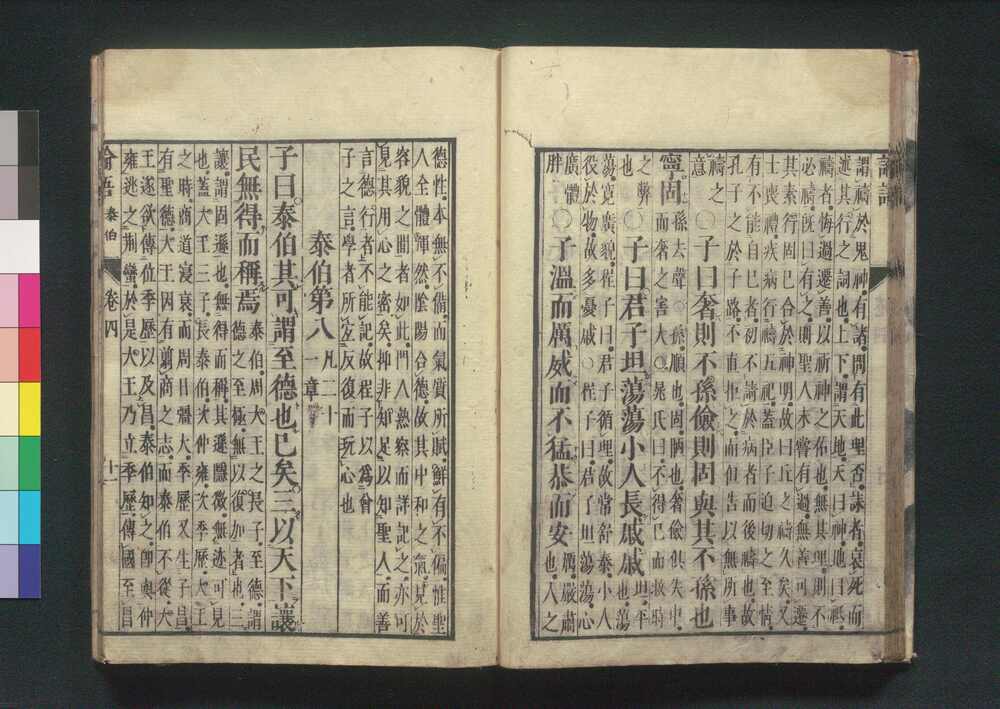 謂禱於鬼神有諸問有此理否誄者哀死而
述其行之詞也上下謂天地天曰神地曰祇
禱者悔過遷善以祈神之佑也無其理則不
必禱既曰有之則聖人未嘗有過無善可遷
其素行固已合於神明故曰丘之禱久矣又
士喪禮疾病行禱五祀蓋臣子迫切之至情
有不能自已者初不請於病者而後禱也故
孔子之於子路不直拒之而但告以無所事
禱之意○子曰奢則不孫儉則固與其不孫也
寧固孫去聲○孫順也固陋也奢儉俱失中
而奢之害大○晁氏曰不得已而救時
之弊也○子曰君子坦蕩蕩小人長戚戚坦平也蕩
蕩寬廣貌程子曰君子循理故常舒泰小人
役於物故多憂戚○程子曰君子坦蕩蕩心
廣體胖○子溫而厲威而不猛恭而安厲嚴肅也人之
德性本無不備而氣質所賦鮮有不偏惟聖
人全體渾然陰陽合德故其中和之氣見於
容貌之閒者如此門人熟察而詳記之亦可
見其用心之密矣抑非知足以知聖人而善
言德行者不能記故程子以爲曾
子之言學者所宜反復而玩心也
泰伯第八凡二十一章
子曰泰伯其可謂至德也已矣三以天下讓
民無得而稱焉泰伯周大王之長子至德謂
德之至極無以復加者也三
讓謂固遜也無得而稱其遜隱微無迹可見
也蓋大王三子長泰伯次仲雍次季歷大王
之時商道寖衰而周日彊大季歷又生子昌
有聖德大王因有翦商之志而泰伯不從大
王遂欲傳位季歷以及昌泰伯知之卽與仲
雍逃之荊蠻於是大王乃立季歷傳國至昌
論語 泰伯 卷四 十一